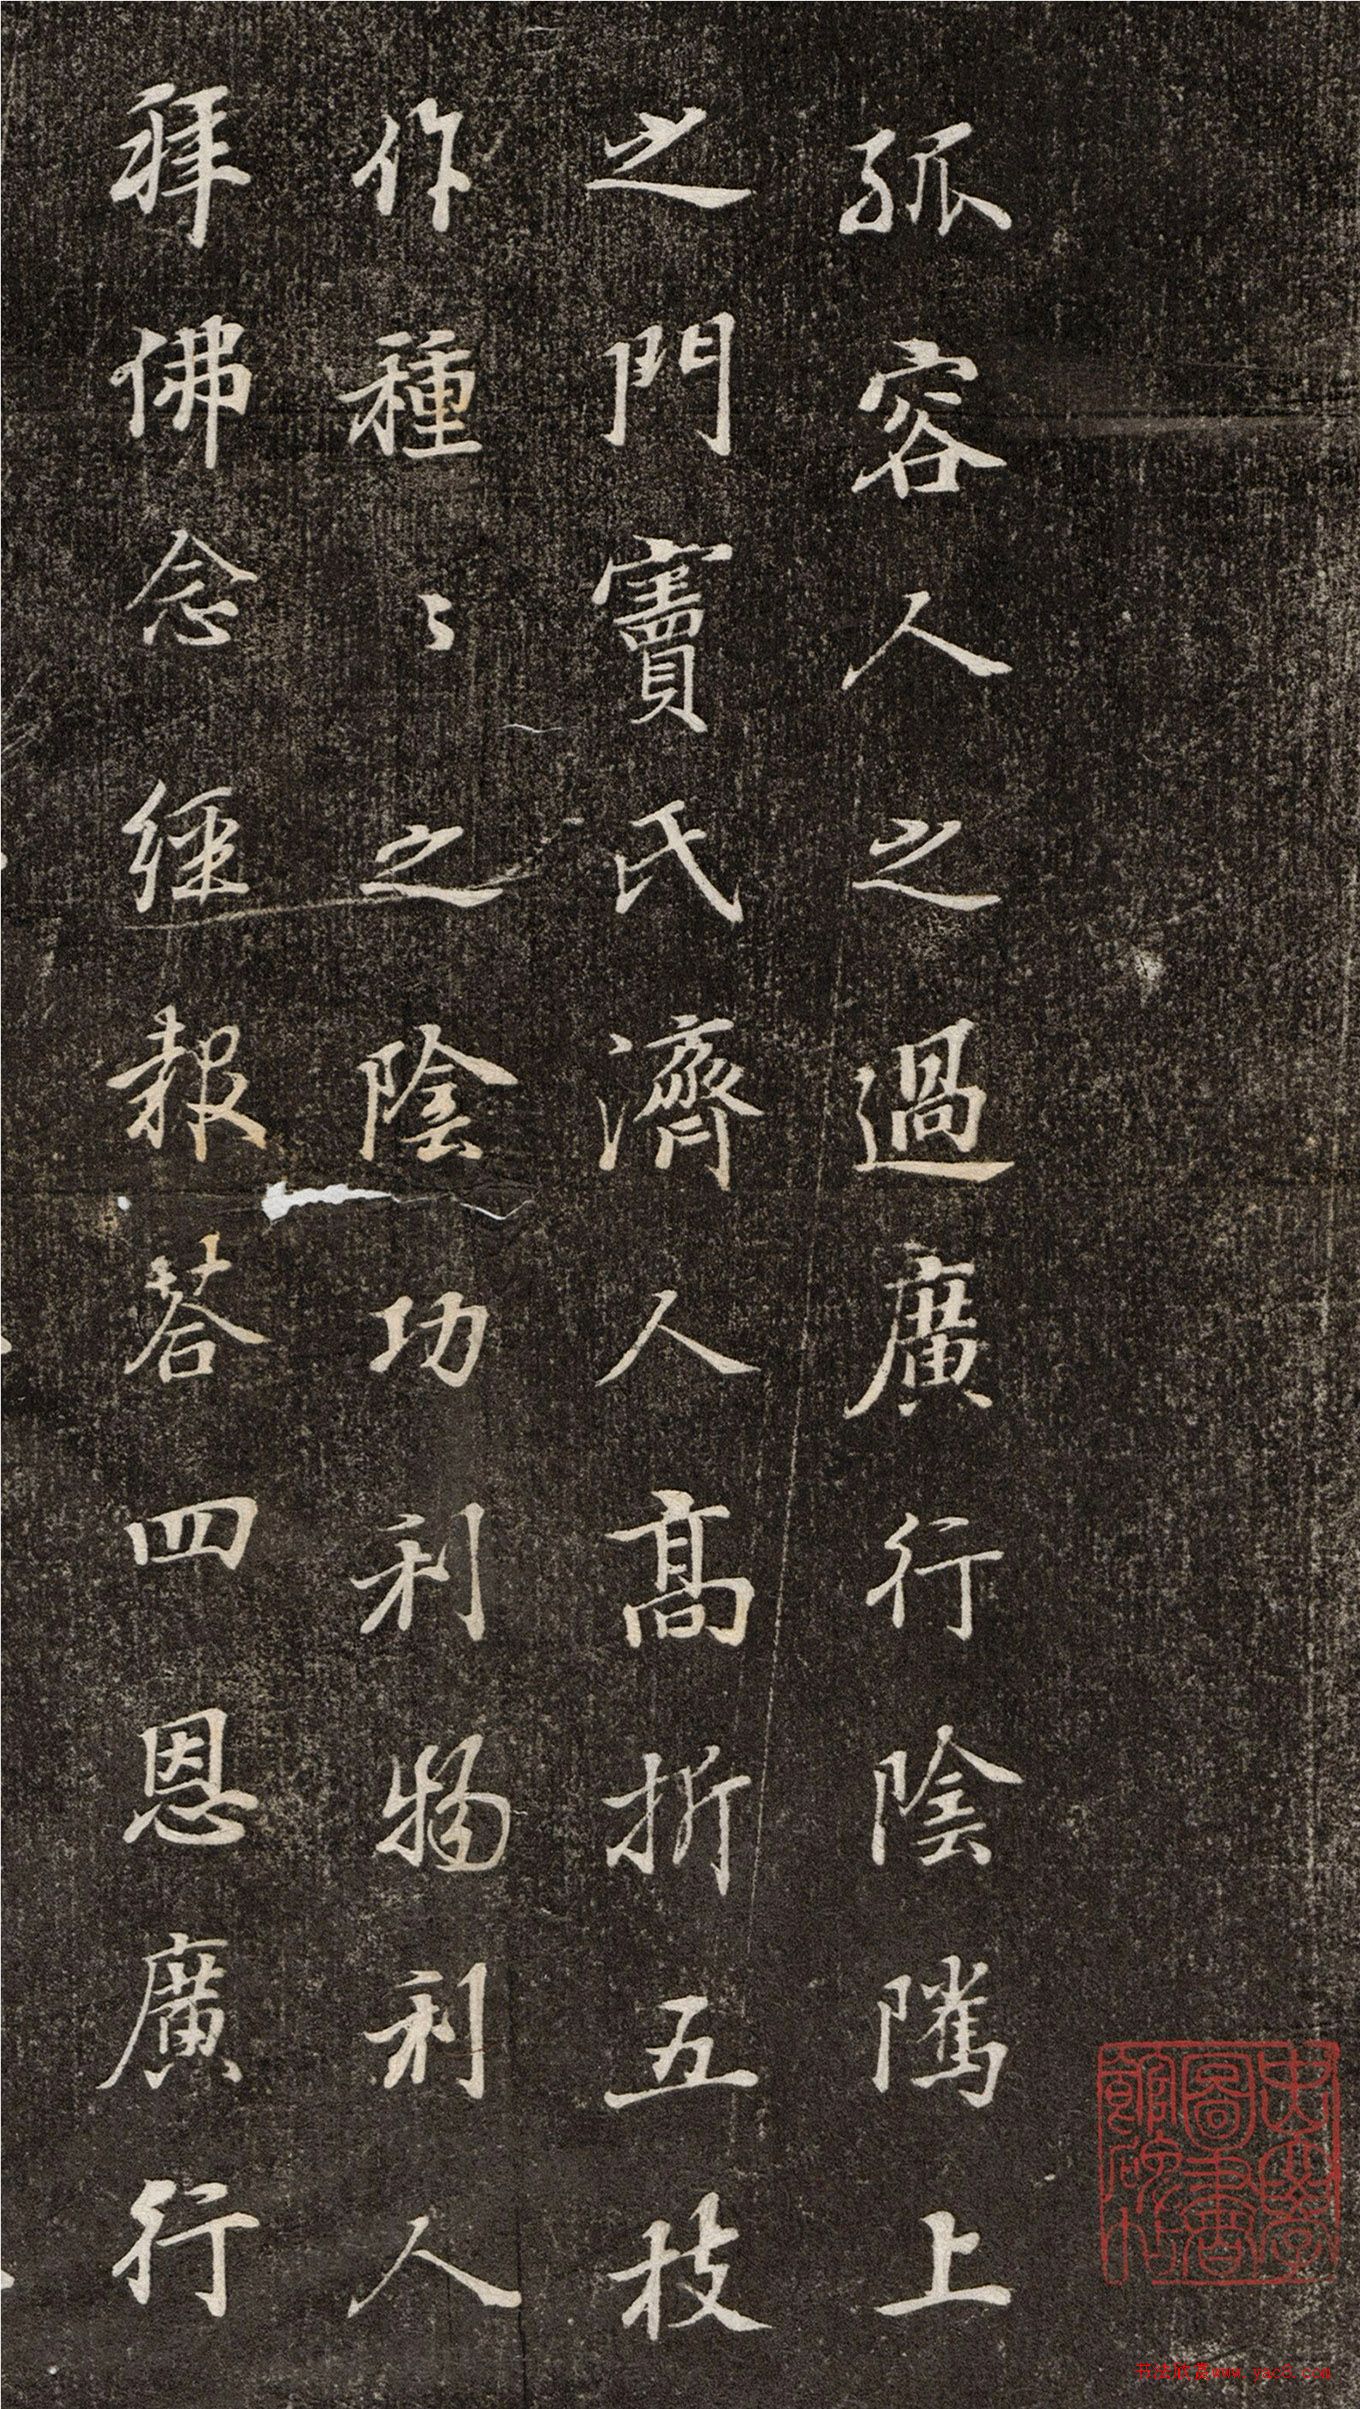 孤容人之過廣行陰隲上
之門竇氏濟人高折五枝
作種々之陰功利物利人
拜佛念經報荅四恩廣行
書法欣賞www.yac8.com